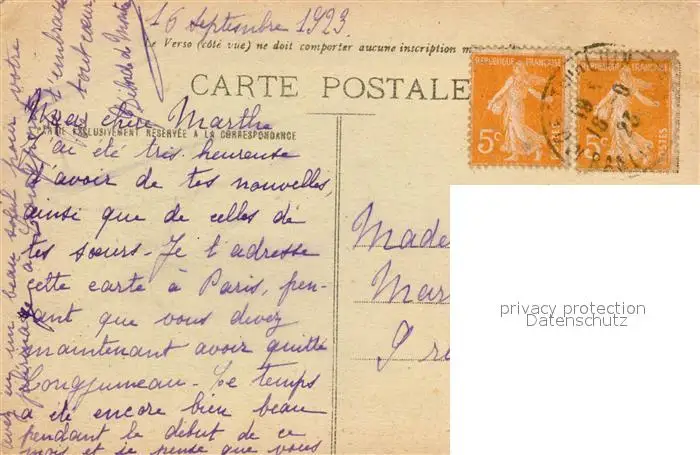 16 Septembre 1923
Le Verso (côté vue) ne doit comporter aucune inscription m
CARTE POSTALE
REPUBLIQUE FRANÇAISE
5c
POSTES
REPUBLIQUE FRANÇAISE
5c
POSTES
PARTIE EXCLUSIVEMENT RÉSERVÉE A LA CORRESPONDANCE
Ma chère Marthe
J'ai été très heureuse
d'avoir de tes nouvelles,
ainsi que de celles de
tes sœurs. Je t'adresse
cette carte à Paris, pen-
sant que vous devez
maintenant avoir quitté
Longjumeau. Le temps
a été encore bien beau
pendant le début de ce
mois et je pense que vous
avez eu un beau soleil pour votre
t'embrasse
tout cœur
Made
Mar
privacy protection
Datenschutz